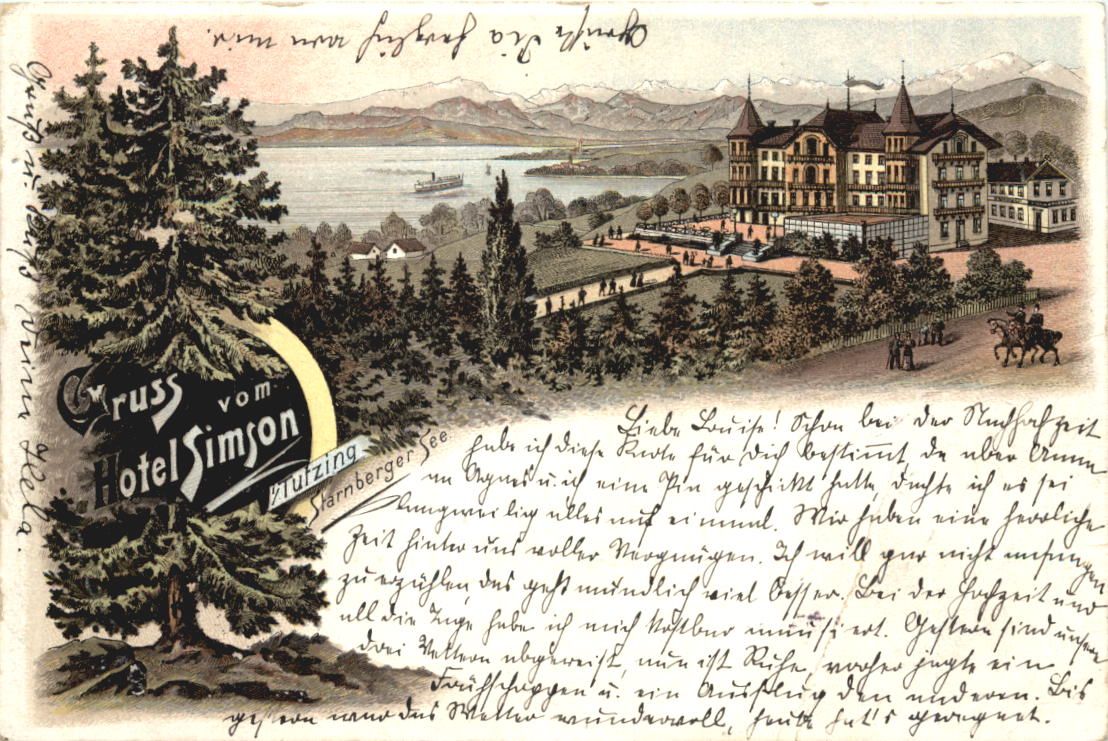 Gruss
vom
Hotel Simson
Tutzing
Starnberger See
Liebe Louise! Schon bei der Nachhochzeit
habe ich diese Karte für Dich bestimmt, da aber Anna
an Agnes u. ich eine Pin geschickt hatte, dachte ich es sei
langweilig alles auf einmal. Wir haben eine herrliche
Zeit hinter uns voller Vergnügen. Ich will gar nicht anfangen
zu erzählen, das geht mündlich viel besser. Bei der Hochzeit und
all die Tage habe ich mich kostbar amüsiert. Gestern sind unsere
drei Vettern abgereist, nun ist Ruhe, vorher jagte ein
Frühschoppen u. ein Ausflug den anderen. Bis
gestern war das Wetter wundervoll, heute hat's geregnet.
Grüße Dich herzlich von mir.
Gruß u. Kuß Deine Hela.